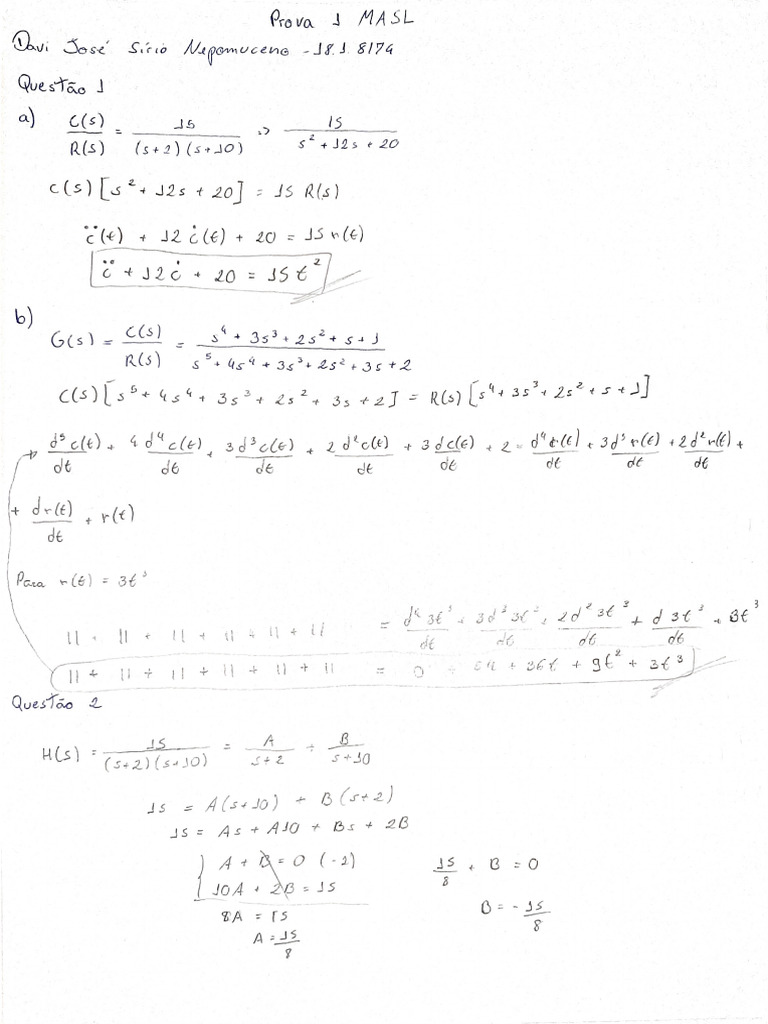 Prova 1 MASL
Davi José Sírio Nepomuceno - 18.1.8174
Questão 1
a) C(s)/R(s) = 15/((s+2)(s+10)) => 15/(s² + 12s + 20)
C(s)[s² + 12s + 20] = 15 R(s)
c̈(t) + 12 ċ(t) + 20 = 15 r(t)
c̈ + 12ċ + 20 = 15t²
b) G(s) = C(s)/R(s) = (s⁴ + 3s³ + 2s² + s + 1)/(s⁵ + 4s⁴ + 3s³ + 2s² + 3s + 2)
C(s)[s⁵ + 4s⁴ + 3s³ + 2s² + 3s + 2] = R(s)[s⁴ + 3s³ + 2s² + s + 1]
d⁵c(t)/dt + 4 d⁴c(t)/dt + 3 d³c(t)/dt + 2 d²c(t)/dt + 3 dc(t)/dt + 2 = d⁴r(t)/dt + 3d³r(t)/dt + 2d²r(t)/dt +
+ dr(t)/dt + r(t)
Para r(t) = 3t³
11 + 11 + 11 + 11 + 11 + 11 = d⁴3t³/dt + 3d³3t³/dt + 2d²3t³/dt + d3t³/dt + 3t³
11 + 11 + 11 + 11 + 11 + 11 = 0 + 54 + 36t + 9t² + 3t³
Questão 2
H(s) = 15/((s+2)(s+10)) = A/(s+2) + B/(s+10)
15 = A(s+10) + B(s+2)
15 = As + A10 + Bs + 2B
A + B = 0 (-2)
15/8 + B = 0
10A + 2B = 15
B = -15/8
8A = 15
A = 15/8